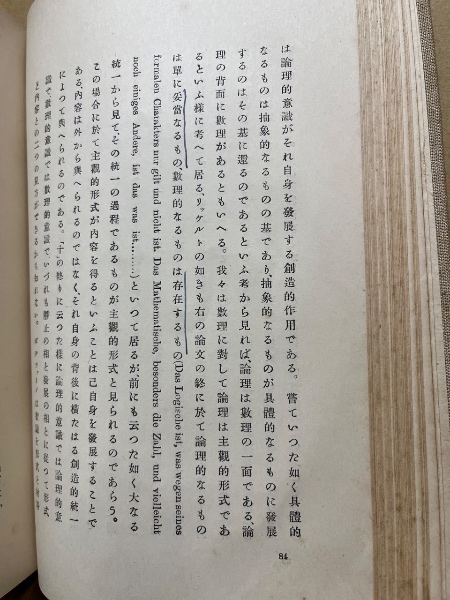 は論理的意識がそれ自身を發展する創造的作用である。嘗ていつた如く具體的
なるものは抽象的なるものの基であり、抽象的なるものが具體的なるものに發展
するのはその基に還るのであるといふ考から見れば、論理は數理の一面である、論
理の背面に數理があるともいへる。我々は數理に對して論理は主觀的形式であ
るといふ樣に考へて居る、リッケルトの如きも右の論文の終に於て論理的なるもの
は單に妥當なるもの數理的なるものは存在するもの(Das Logische ist, was wegen seines
formalen Charakters nur gilt und nicht ist. Das Mathematische, besonders die Zahl, und vielleicht
noch einiges Andere, ist das was ist……)といつて居るが、前にも云つた如く大なる
統一から見て、その統一の過程であるものが主觀的形式と見られるのであらう。
この場合に於て主觀的形式が内容を得るといふことは己自身を發展することで
ある、内容は外から與へられるのではなく、それ自身の背後に橫たはる創造的統一
によつて與へられるのである。「十」の終りに云つた樣に論理的意識では論理的意
識で、數理的意識では數理的意識で、いづれも靜止の相と發展の相とに從つて形式
と内容との二つの
84